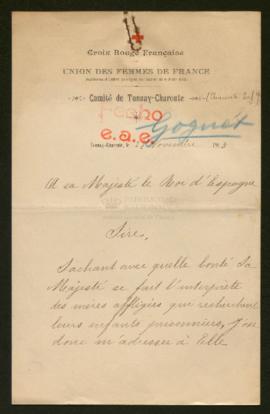 Croix Rouge Française
UNION DES FEMMES DE FRANCE
Comité de Tonnay-Charente
Fecho
Goguet
e.a.e.
Tonnay-Charente, le Novembre 191
A sa Majesté le Roi d'Espagne
Sire,
Sachant avec quelle bonté Sa
Majesté se fait l'interprète
des mères affligées qui recherchent
leurs enfants prisonniers, j'ose
donc m'adresser à Elle